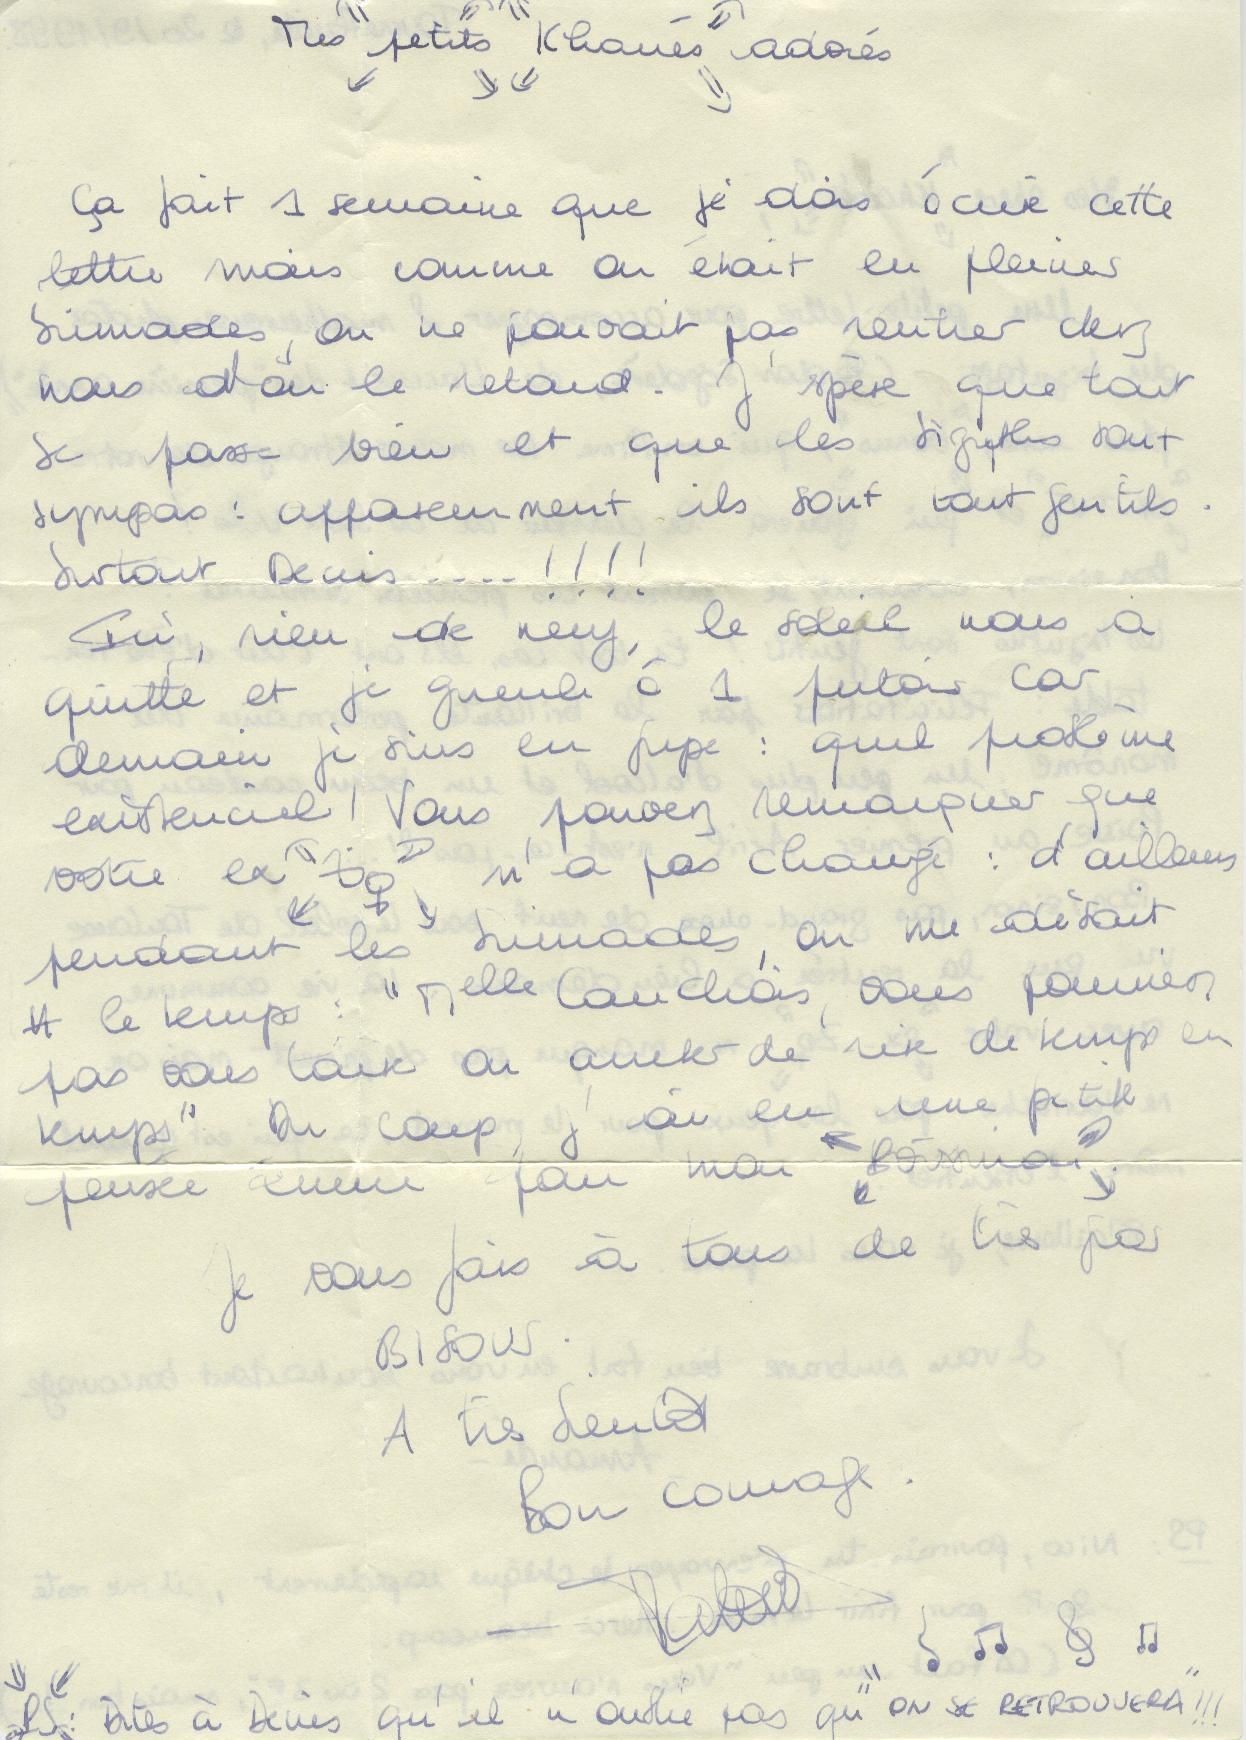 Mes "petits" "Khâres" adorés
Ça fait 1 semaine que je dois écrire cette
lettre mais comme on était en pleines
brimades, on ne pouvait pas rentrer chez
nous d'où le retard. J'espère que tout
se passe bien et que les sont
sympas : apparemment ils sont tout gentils.
Surtout Denis ....!!!!
Ici, rien de neuf, le soleil nous à
quitté et je gueule à 1 putois car
demain je suis en jupe : quel problème
existenciel ! Vous pouvez remarquer que
votre ex n'a pas changé : d'ailleurs
pendant les brimades, on me disait
tt le temps : "Melle Cauchois, vous pourriez
pas vous taire ou arrêter de rire de temps en
temps" Du coup, j'ai eu une petite
pensée émue pour mon
Je vous fais à tous de très gros
BISOUS.
A très bientôt
Bon courage.
PS : Dites à Denis qu'il n'oublie pas qu'" ON SE RETROUVERA"!!!